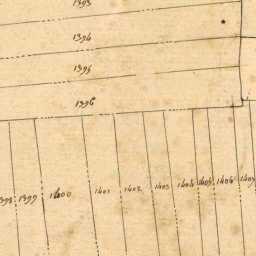 1393
1394
1395
1396
1398 1399 1400 1401 1402 1403 1404 1405 1406 1407